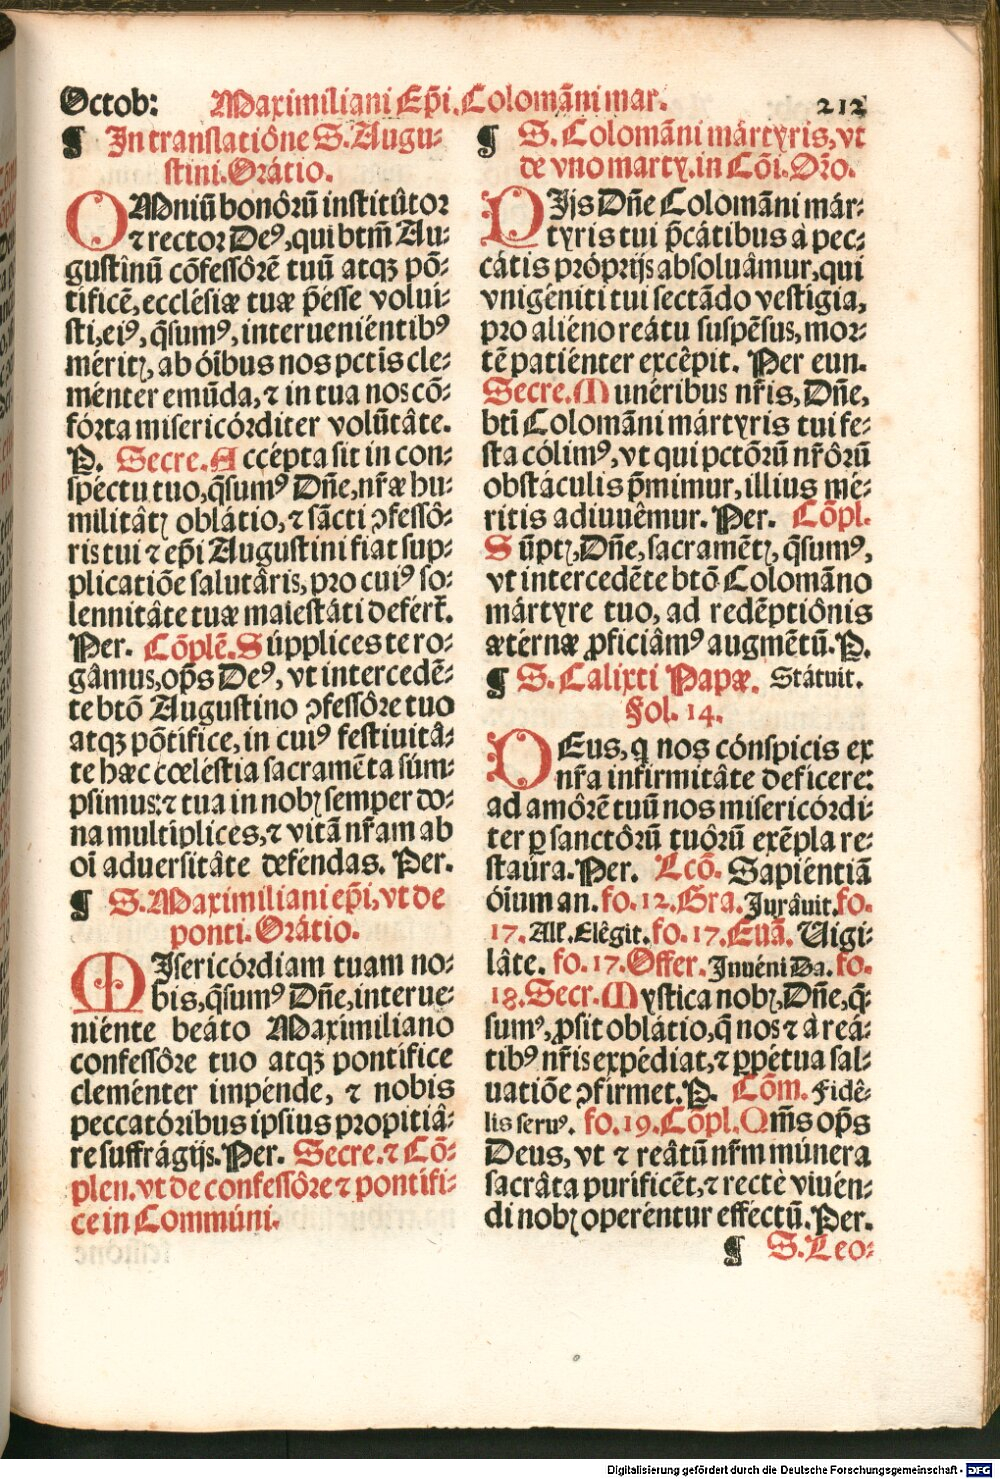 Octob: Maximiliani Ep̃i. Colomãni mar. 212
¶ In translatiône S. Augu⸗
stini. Orátio.
OMniũ bonôrũ institûtor
⁊ rector Deꝰ, qui btm̃ Au⸗
gustînũ cõfessôrẽ tuũ atqꝫ põ⸗
tificẽ, ecclésiæ tuæ p̃esse volui⸗
sti, eiꝰ, q̃sumꝰ, interueniéntibꝰ
méritꝭ, ab óĩbus nos pctĩs cle⸗
ménter emũda, ⁊ in tua nos cõ⸗
fórta misericórditer volũtâte.
P. Secre. Accépta sit in con⸗
spéctu tuo, q̃sumꝰ Dñe, nr̃æ hu⸗
militâtꝭ oblátio, ⁊ sãcti ꝯfessô⸗
ris tui ⁊ ep̃i Augustini fiat sup⸗
plicatiõe salutâris, pro cuiꝰ so⸗
lennitâte tuæ maiestáti defért̃.
Per. Cõplẽ. Súpplices te ro⸗
gâmus, op̃s Deꝰ, vt intercedẽ⸗
te btõ Augustino ꝯfessôre tuo
atqꝫ põtifice, in cuiꝰ festiuitâ⸗
te hæc cœléstia sacramẽta súm⸗
psimus: ⁊ tua in nobꝭ semper do⸗
na multíplices, ⁊ vitã nr̃am ab
oĩ aduersitâte deféndas. Per.
¶ S. Maximiliani ep̃i, vt de
ponti. Orátio.
MIsericórdiam tuam no⸗
bis, q̃sumꝰ Dñe, interue⸗
niénte beáto Maximiliano
confessôre tuo atqꝫ pontífice
cleménter impénde, ⁊ nobis
peccatóribus ipsius propitiâ⸗
re suffrágijs. Per. Secre. ⁊ Cõ⸗
plen. vt de confessôre ⁊ pontifi⸗
ce in Commúni.
¶ S. Colomãni mártyris, vt
de vno marty. in Cõi. Oro.
OIjs Dñe Colomãni már⸗
tyris tui p̃cátibus à pec⸗
cátis próprijs absoluâmur, qui
vnigéniti tui sectãdo vestígia,
pro aliéno reátu suspẽsus, mor⸗
tẽ patiénter excêpit. Per eun.
Secre. Munéribus nr̃is, Dñe,
btĩ Colomãni mártyris tui fe⸗
sta cólimꝰ, vt qui pctõrũ nr̃ôrũ
obstáculis p̃mimur, illíus mé⸗
ritis adiuuêmur. Per. Cõpl.
Sũptꝭ, Dñe, sacramẽtꝭ, q̃sumꝰ,
vt intercedẽte btõ Colomãno
mártyre tuo, ad redẽptiônis
ætérnæ ꝓficiâmꝰ augmẽtũ. P.
¶ S. Calixti Papæ. Státuit.
Fol. 14.
DEus, q nos cónspicis ex
nr̃a infirmitâte defícere:
ad amôrẽ tuũ nos misericórdi⸗
ter ꝑ sanctôrũ tuôrũ exẽpla re⸗
stáura. Per. Lcõ. Sapiéntiã
óĩum an. fo. 12. Gra. Jurâuit. fo.
17. All. Elêgit. fo. 17. Euã. Uigi⸗
lâte. fo. 17. Offer. Inuéni Da. fo.
18. Secr. Mystica nobꝭ, Dñe, q̃⸗
sumꝰ, ꝓsit oblátio, q̃ nos ⁊ à reá⸗
tibꝰ nr̃is expédiat, ⁊ ꝑpétua sal⸗
uatiõe ꝯfirmet. P. Cõm. Fidê⸗
lis seruꝰ. fo. 19. Cõpl. Qm̃s op̃s
Deus, vt ⁊ reâtũ nr̃m múnera
sacrâta purificẽt, ⁊ rectè viuén⸗
di nobꝭ operéntur efféctũ. Per.
¶ S. Leo⸗
Digitalisierung gefördert durch die Deutsche Forschungsgemeinschaft - DFG